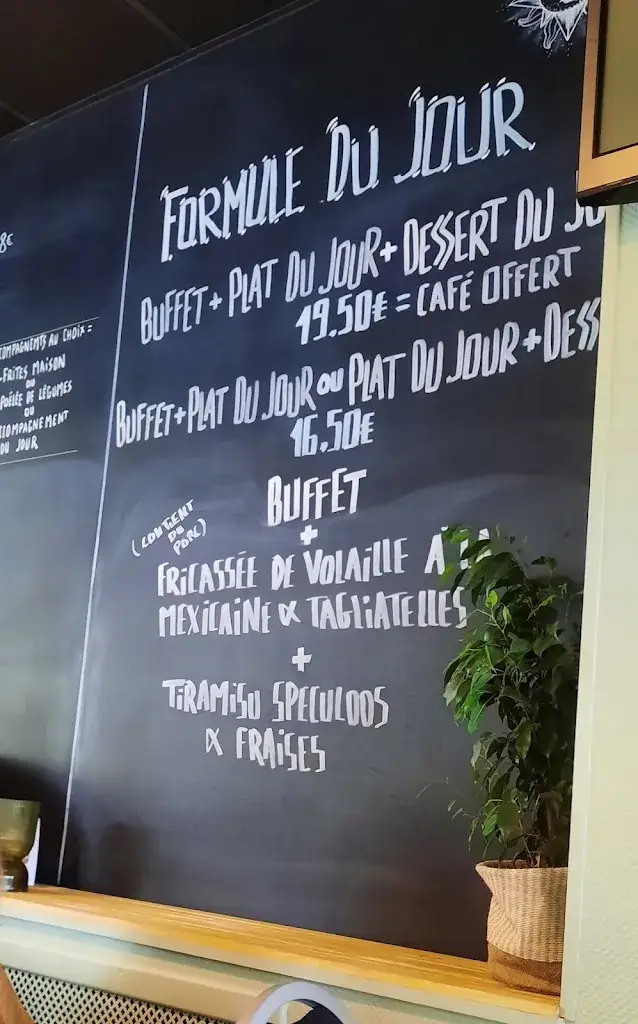 8€
COMPAGNEMENTS AU CHOIX =
-FRITES MAISON
OU
POÊLÉE DE LÉGUMES
OU
CCOMPAGNEMENT
DU JOUR
FORMULE DU JOUR
BUFFET + PLAT DU JOUR + DESSERT DU JO
19.50€ = CAFÉ OFFERT
BUFFET + PLAT DU JOUR OU PLAT DU JOUR + DESS
16,50€
BUFFET
+
(CONTIENT
DU
PORC)
FRICASSÉE DE VOLAILLE À LA
MEXICAINE & TAGLIATELLES
+
TIRAMISU SPECULOOS
& FRAISES